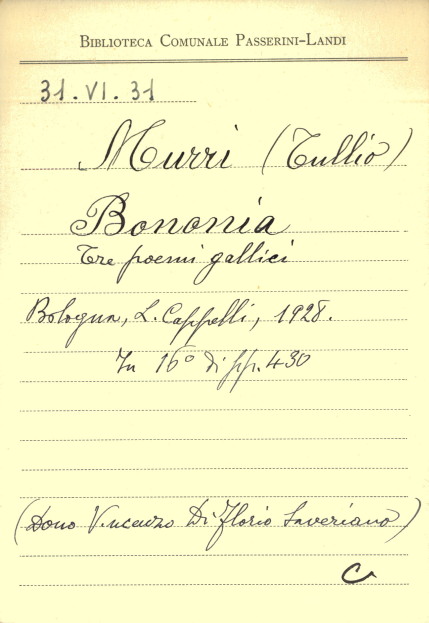 BIBLIOTECA COMUNALE PASSERINI-LANDI
31.VI.31
Murri (Tullio)
Bononia
Tre poemi gallici
Bologna, L. Cappelli, 1928.
In 16° di pp. 430
(Dono Vincenzo Di Florio Saveriano)
C